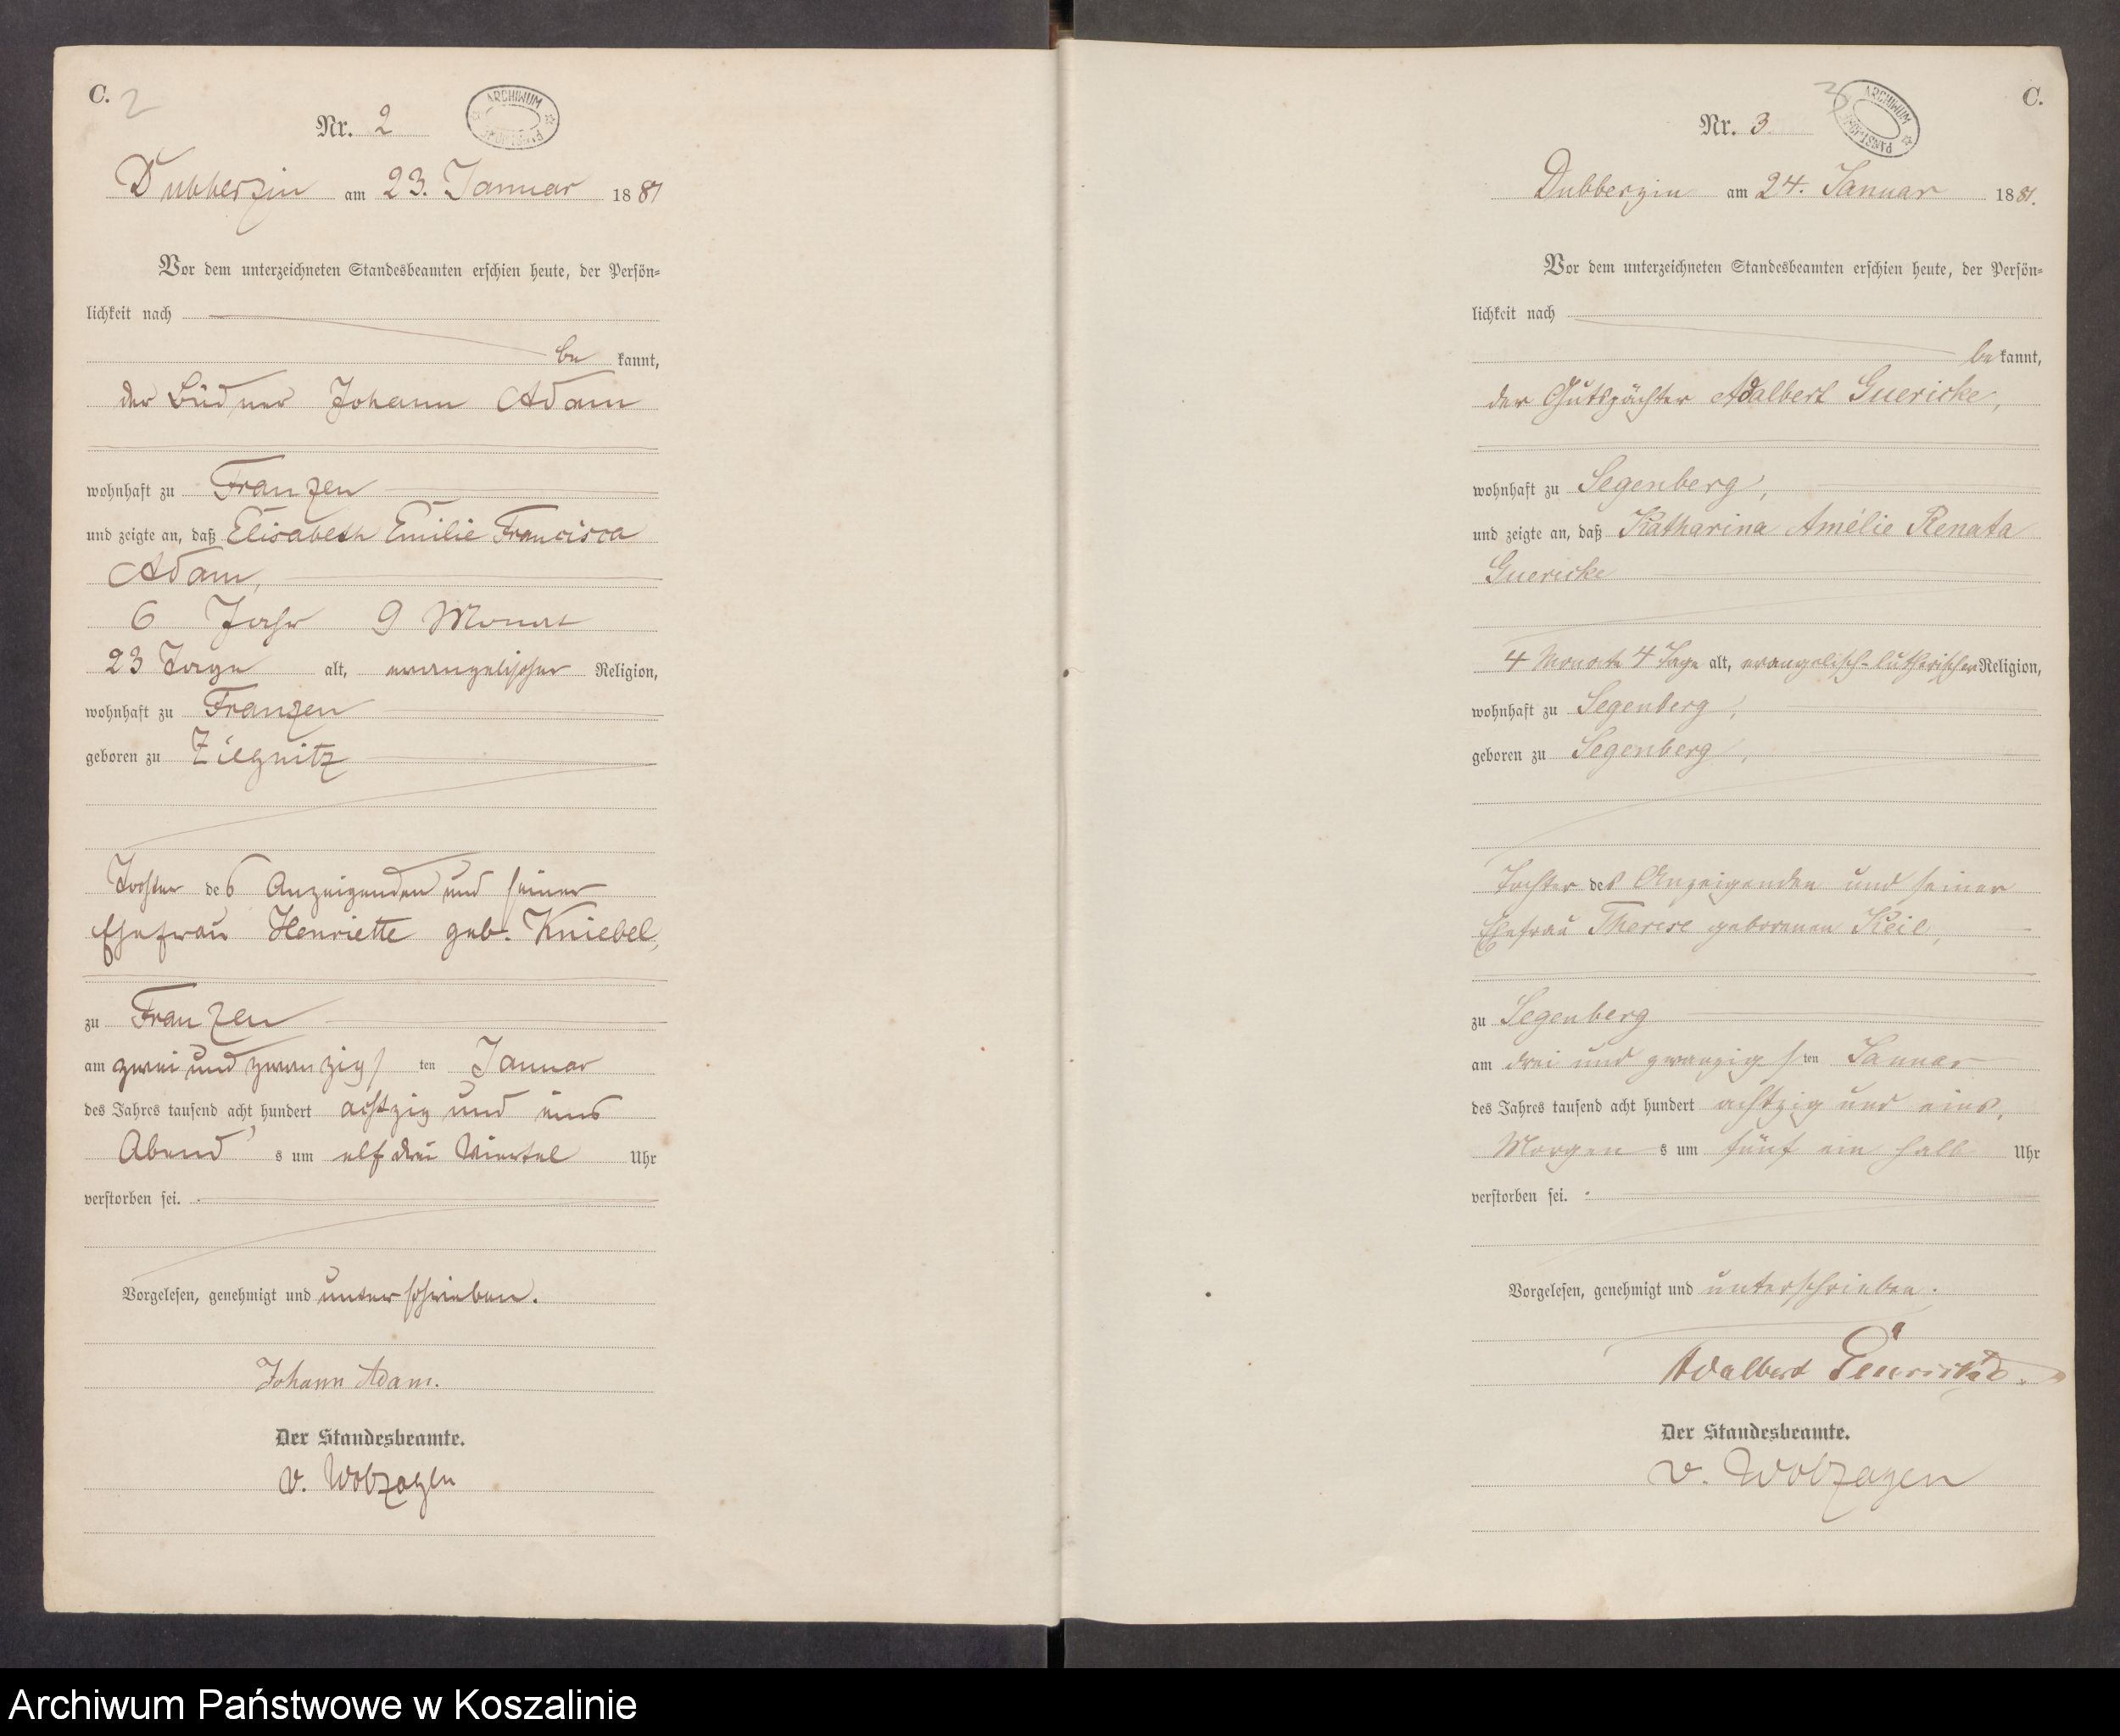 C. 2
ARCHIWUM
Nr. 2
Dubberzin am 23. Januar 1881
Vor dem unterzeichneten Standesbeamten erschien heute, der Persön-
lichkeit nach
be kannt,
der Büdner Johann Adam
wohnhaft zu Franzen
und zeigte an, daß Elisabeth Emilie Francisca
Adam,
6 Jahr 9 Monat
23 Tage alt, evangelischer Religion,
wohnhaft zu Franzen
geboren zu Ziegnitz
Tochter des Anzeigenden und seiner
Ehefrau Henriette geb. Kniebel,
zu Franzen
am zwei und zwanzigsten Januar
des Jahres tausend acht hundert achtzig und eins
Abends um elf drei Viertel Uhr
verstorben sei.
Vorgelesen, genehmigt und unterschrieben.
Johann Adam.
Der Standesbeamte.
v. Wobzagen
C.
3
ARCHIWUM
Nr. 3.
Dubberzin am 24. Januar 1881.
Vor dem unterzeichneten Standesbeamten erschien heute, der Persön-
lichkeit nach
be kannt,
der Gutspächter Adalbert Guericke,
wohnhaft zu Segenberg,
und zeigte an, daß Katharina Amélie Renata
Guericke
4 Monate 4 Tage alt, evangelisch-lutherischer Religion,
wohnhaft zu Segenberg,
geboren zu Segenberg,
Tochter des Anzeigenden und seiner
Ehefrau Therese geborenen Keil,
zu Segenberg
am drei und zwanzigsten Januar
des Jahres tausend acht hundert achtzig und eins,
Morgens um fünf ein halb Uhr
verstorben sei.
Vorgelesen, genehmigt und unterschrieben.
Adalbert Guericke.
Der Standesbeamte.
v. Wobzagen
Archiwum Państwowe w Koszalinie